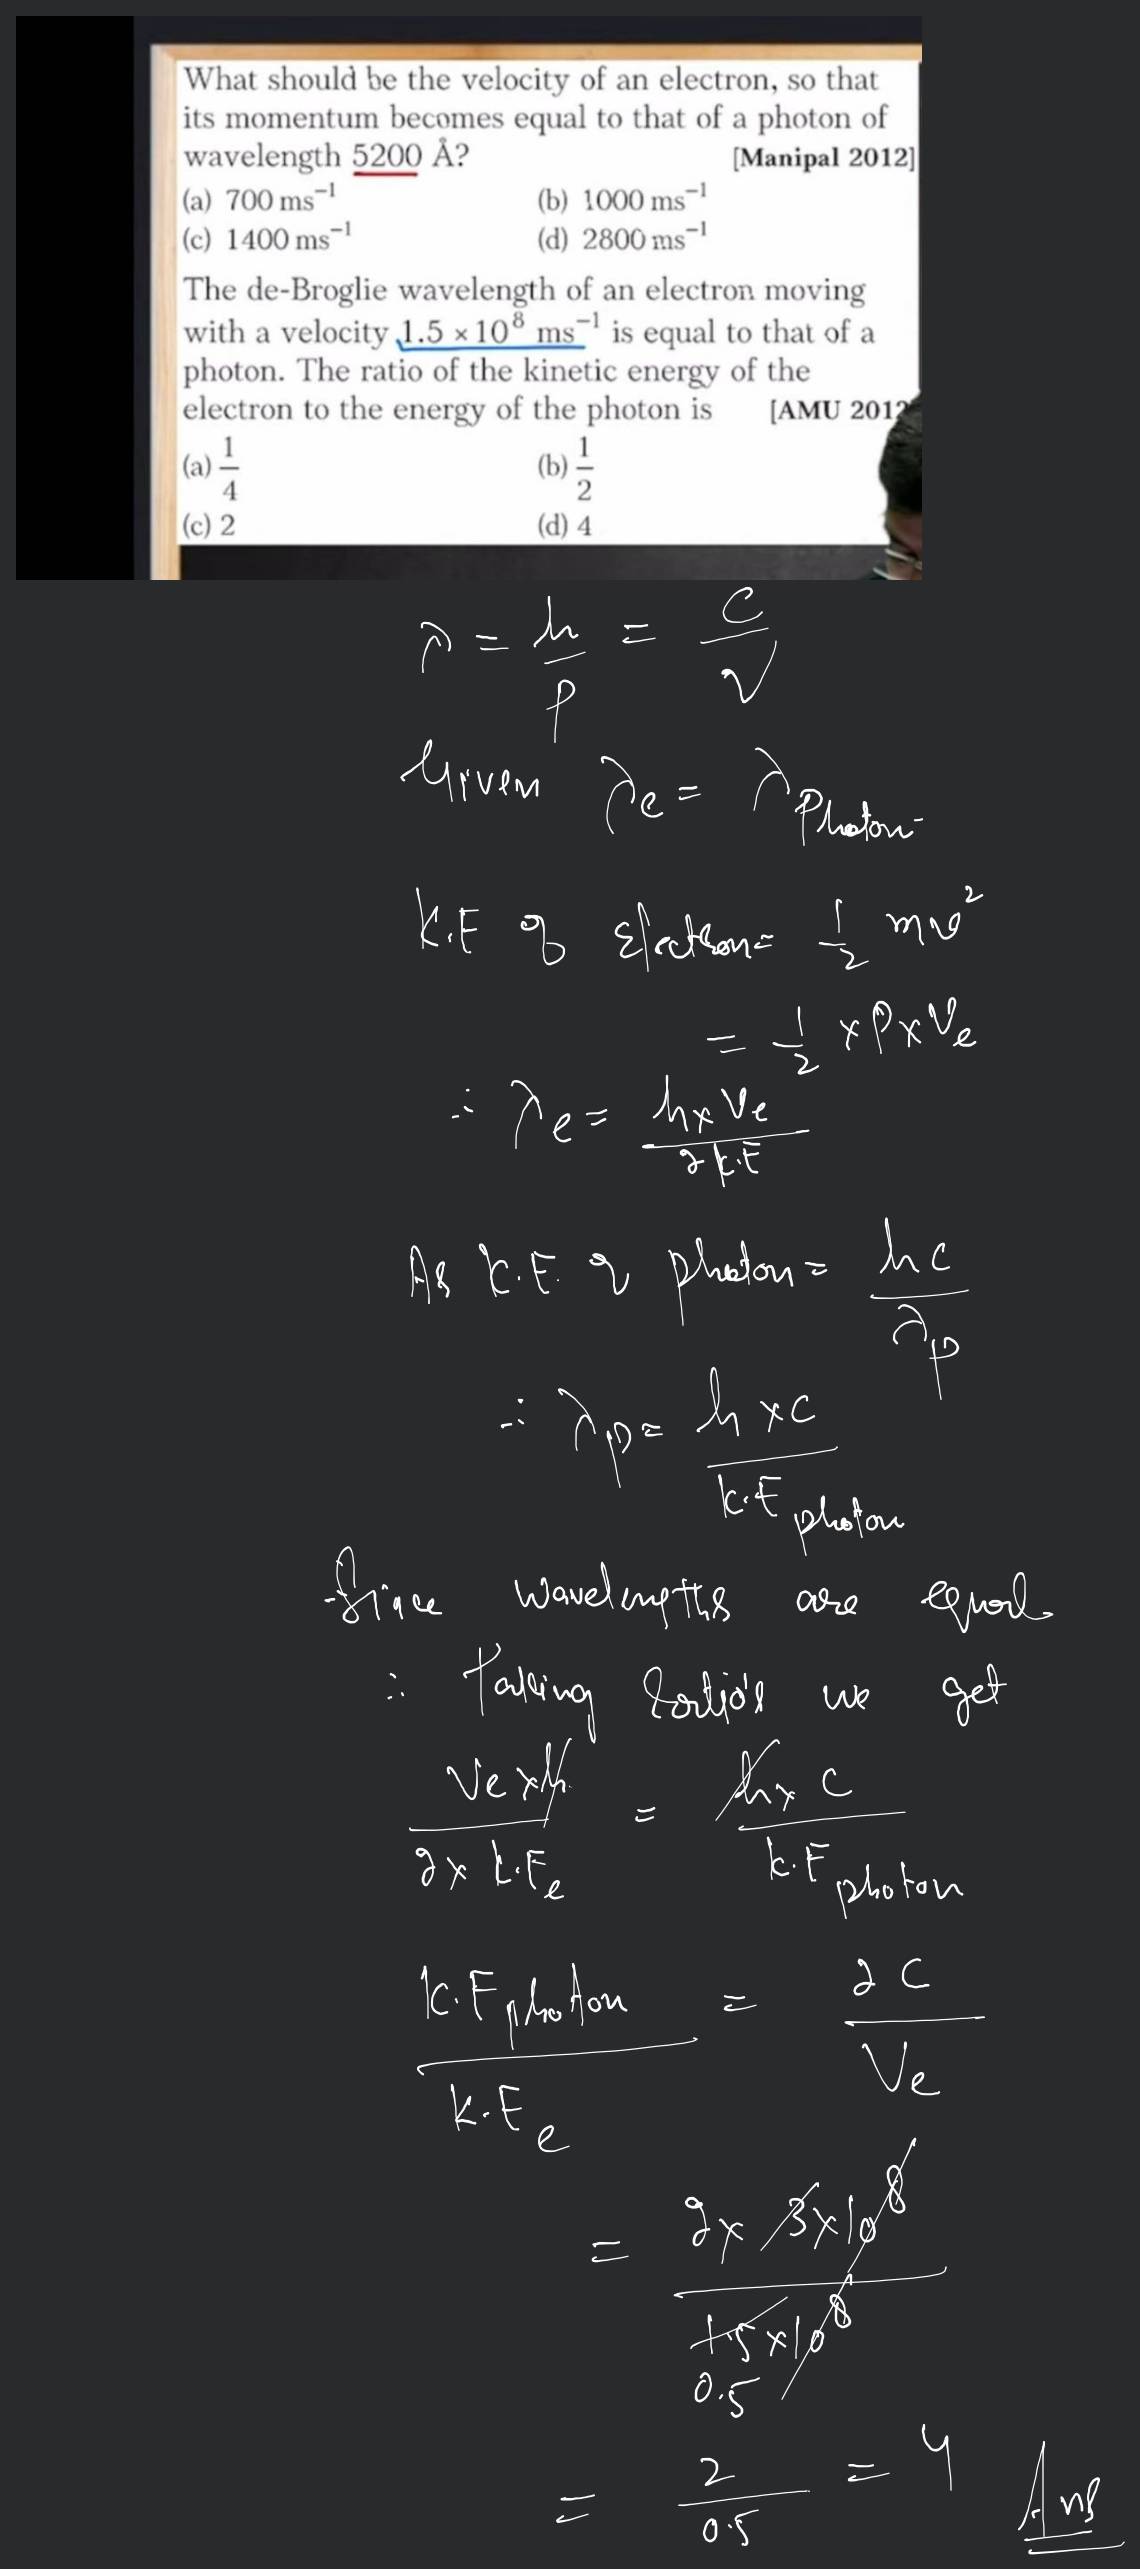 What should be the velocity of an electron, so that
its momentum becomes equal to that of a photon of
wavelength 5200 Å? [Manipal 2012]
(a) 700 ms⁻¹ (b) 1000 ms⁻¹
(c) 1400 ms⁻¹ (d) 2800 ms⁻¹
The de-Broglie wavelength of an electron moving
with a velocity 1.5 × 10⁸ ms⁻¹ is equal to that of a
photon. The ratio of the kinetic energy of the
electron to the energy of the photon is [AMU 2012
(a) 1/4 (b) 1/2
(c) 2 (d) 4
λ = h/p = c/ν
Given λe = λPhoton
K.E of Electron = 1/2 mv²
= 1/2 × P × Ve
∴ λe = h × Ve / 2 K.E
As K.E. of photon = hc / λp
∴ λp = h × c / K.E photon
Since wavelengths are equal
∴ Taking Ratio's we get
Ve × h / 2 × K.Ee = h × c / K.E photon
K.E photon / K.Ee = 2C / Ve
= 2 × 3 × 10⁸ / 1.5 × 10⁸
0.5
= 2 / 0.5 = 4 Ans